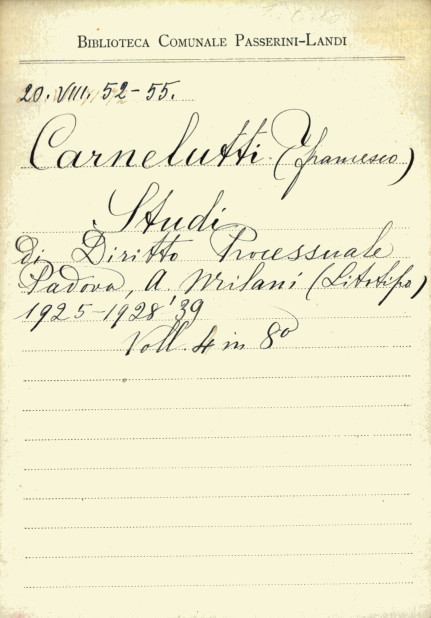 BIBLIOTECA COMUNALE PASSERINI-LANDI
20. VIII. 52-55.
Carnelutti (Francesco)
Studi
di Diritto Processuale
Padova, A. Milani (Litotipo)
1925-1928'39
Voll. 4 in 8º